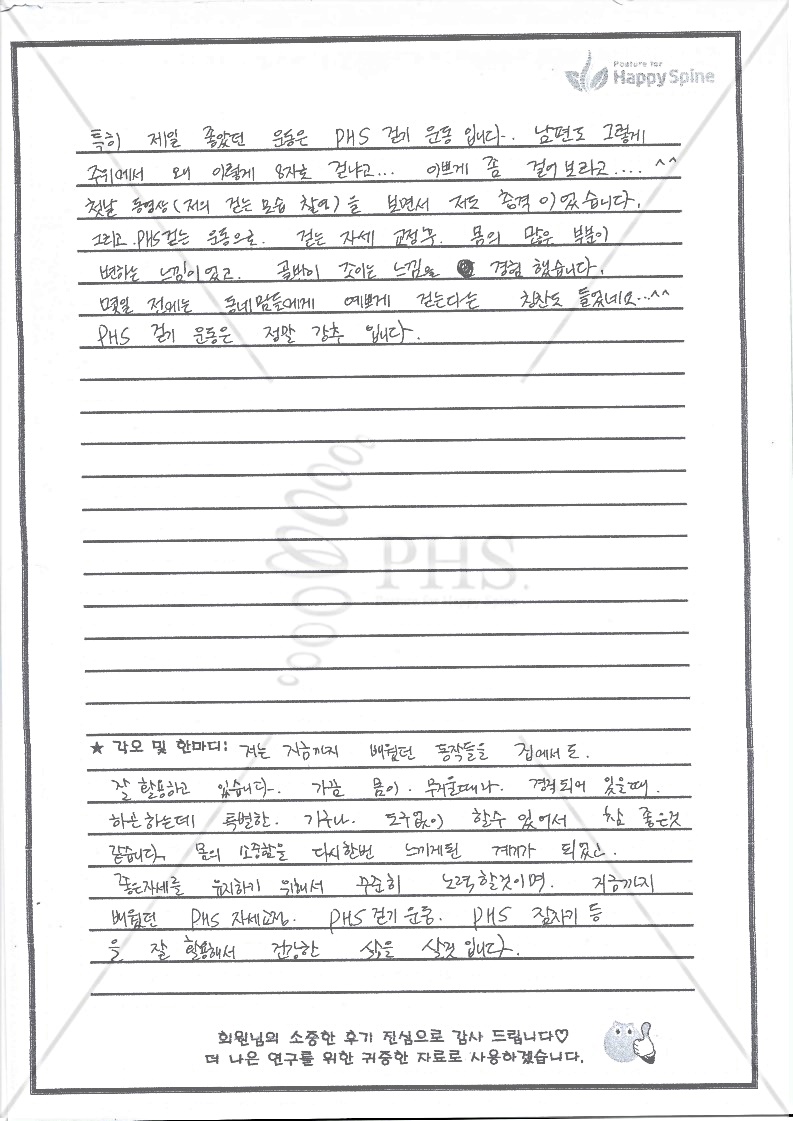 Posture for
Happy Spine
특히 제일 좋았던 운동은 PHS 걷기 운동 입니다. 남편도 그렇게
주위에서 왜 이렇게 8자로 걷냐고... 이쁘게 좀 걸어보라고.... ^^
첫날 동영상(저의 걷는 모습 촬영)을 보면서 저도 충격이 있습니다.
그리고 .PHS걷는 운동으로. 걷는 자세 교정후. 몸의 많은 부분이
변하는 느낌이있고. 골반이 조이는 느낌을 경험 했습니다.
몇일 전에는 동네맘들에게 예쁘게 걷는다는 칭찬도 들었네요...^^
PHS 걷기 운동은 정말 강추 입니다.
PHS.
★ 각오 및 한마디: 저는 지금까지 배웠던 동작들을 집에서도.
잘 활용하고 있습니다. 가끔 몸이. 무거울때나. 경직되어 있을때.
하곤하는데 특별한. 기구나. 도구없이 할수 있어서 참 좋은것
같습니다. 몸의 소중함을 다시한번 느끼게된 계기가 되었고.
좋은자세를 유지하기 위해서 꾸준히 노력할것이며. 지금까지
배웠던 PHS 자세교정. PHS걷기운동. PHS 잠자기 등
을 잘 활용해서 건강한 삶을 살것 입니다.
회원님의 소중한 후기 진심으로 감사 드립니다♡
더 나은 연구를 위한 귀중한 자료로 사용하겠습니다.